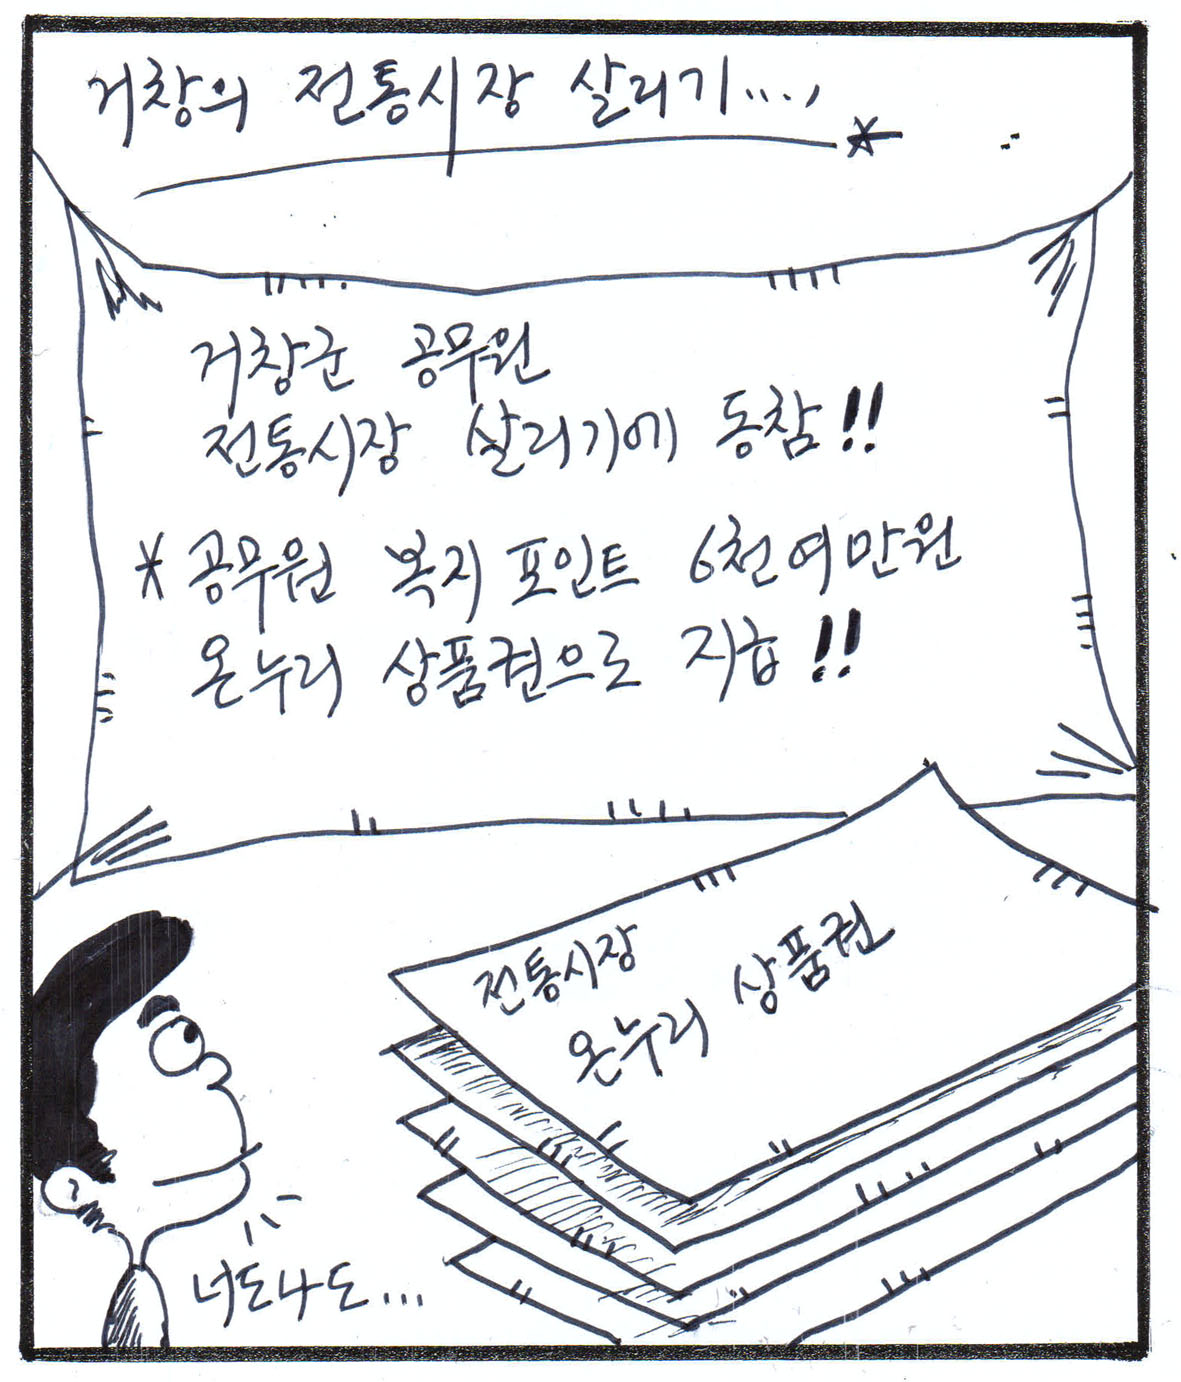 거창의 전통시장 살리기....,
거창군 공무원
전통시장 살리기에 동참!!
* 공무원 복지 포인트 6천여만원
온누리 상품권으로 지급!!
전통시장
온누리 상품권
너도나도...